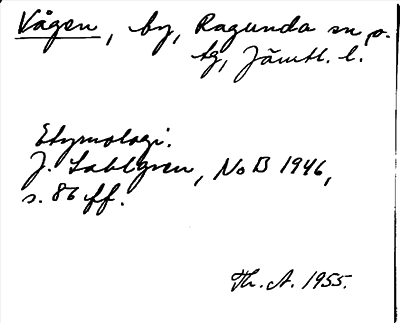 Vågen, by, Ragunda sn o.
tg, Jämtl. l.
Etymologi.
J. Sahlgren, NoB 1946,
s. 86 ff.
Th. A. 1955.